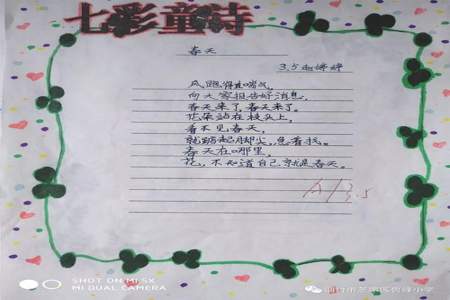 七彩童诗
春天
风跑得直喘气,
向大家报告好消息,
春天来了,春天来了。
花朵站在枝头上,
看不见春天,
就踮起脚尖,急着找,
春天在哪里,
花,不知道自己就是春天。
SHOT ON MI 5X
MI DUAL CAMERA